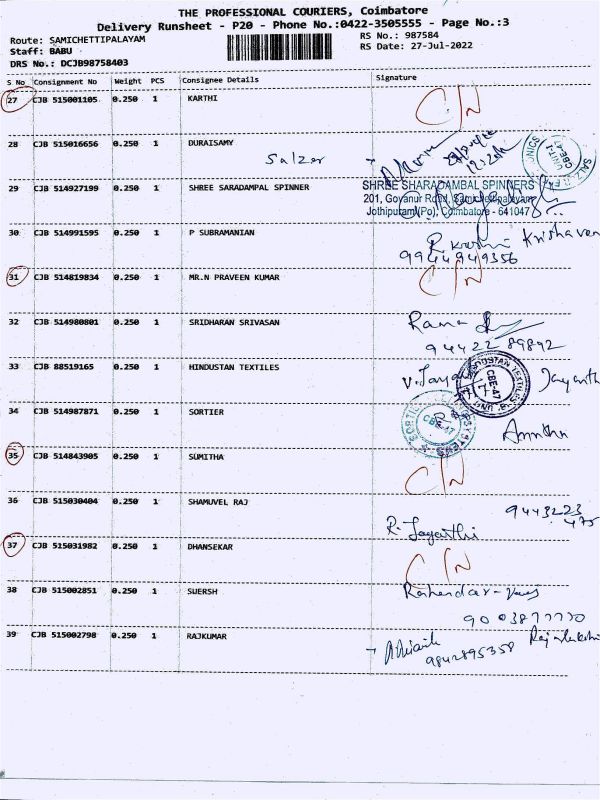 THE PROFESSIONAL COURIERS, Coimbatore
Delivery Runsheet - P20 - Phone No.:0422-3505555 - Page No.:3
Route: SAMICHETTIPALAYAM RS No.: 987584
Staff: BABU RS Date: 27-Jul-2022
DRS No.: DCJB98758403
S No Consignment No Weight PCS Consignee Details Signature
27 CJB 515001105 0.250 1 KARTHI C/N
28 CJB 515016656 0.250 1 DURAISAMY
Salzer
29 CJB 514927199 0.250 1 SHREE SARADAMPAL SPINNER SHREE SHARADAMBAL SPINNERS
201, Govanur Road, Samichettipalayam
Jothipuram(Po), Coimbatore - 641047
30 CJB 514991595 0.250 1 P SUBRAMANIAN
9944949356
31 CJB 514819834 0.250 1 MR.N PRAVEEN KUMAR C/N
32 CJB 514980801 0.250 1 SRIDHARAN SRIVASAN Rama
94422 89892
33 CJB 88519165 0.250 1 HINDUSTAN TEXTILES
CBE-47
34 CJB 514987871 0.250 1 SORTIER
CBE-47
35 CJB 514843905 0.250 1 SUMITHA C/N
36 CJB 515030404 0.250 1 SHAMUVEL RAJ 9443223
475
R. Jayanthi
37 CJB 515031982 0.250 1 DHANSEKAR C/N
38 CJB 515002851 0.250 1 SUERSH
39 CJB 515002798 0.250 1 RAJKUMAR
9842895358